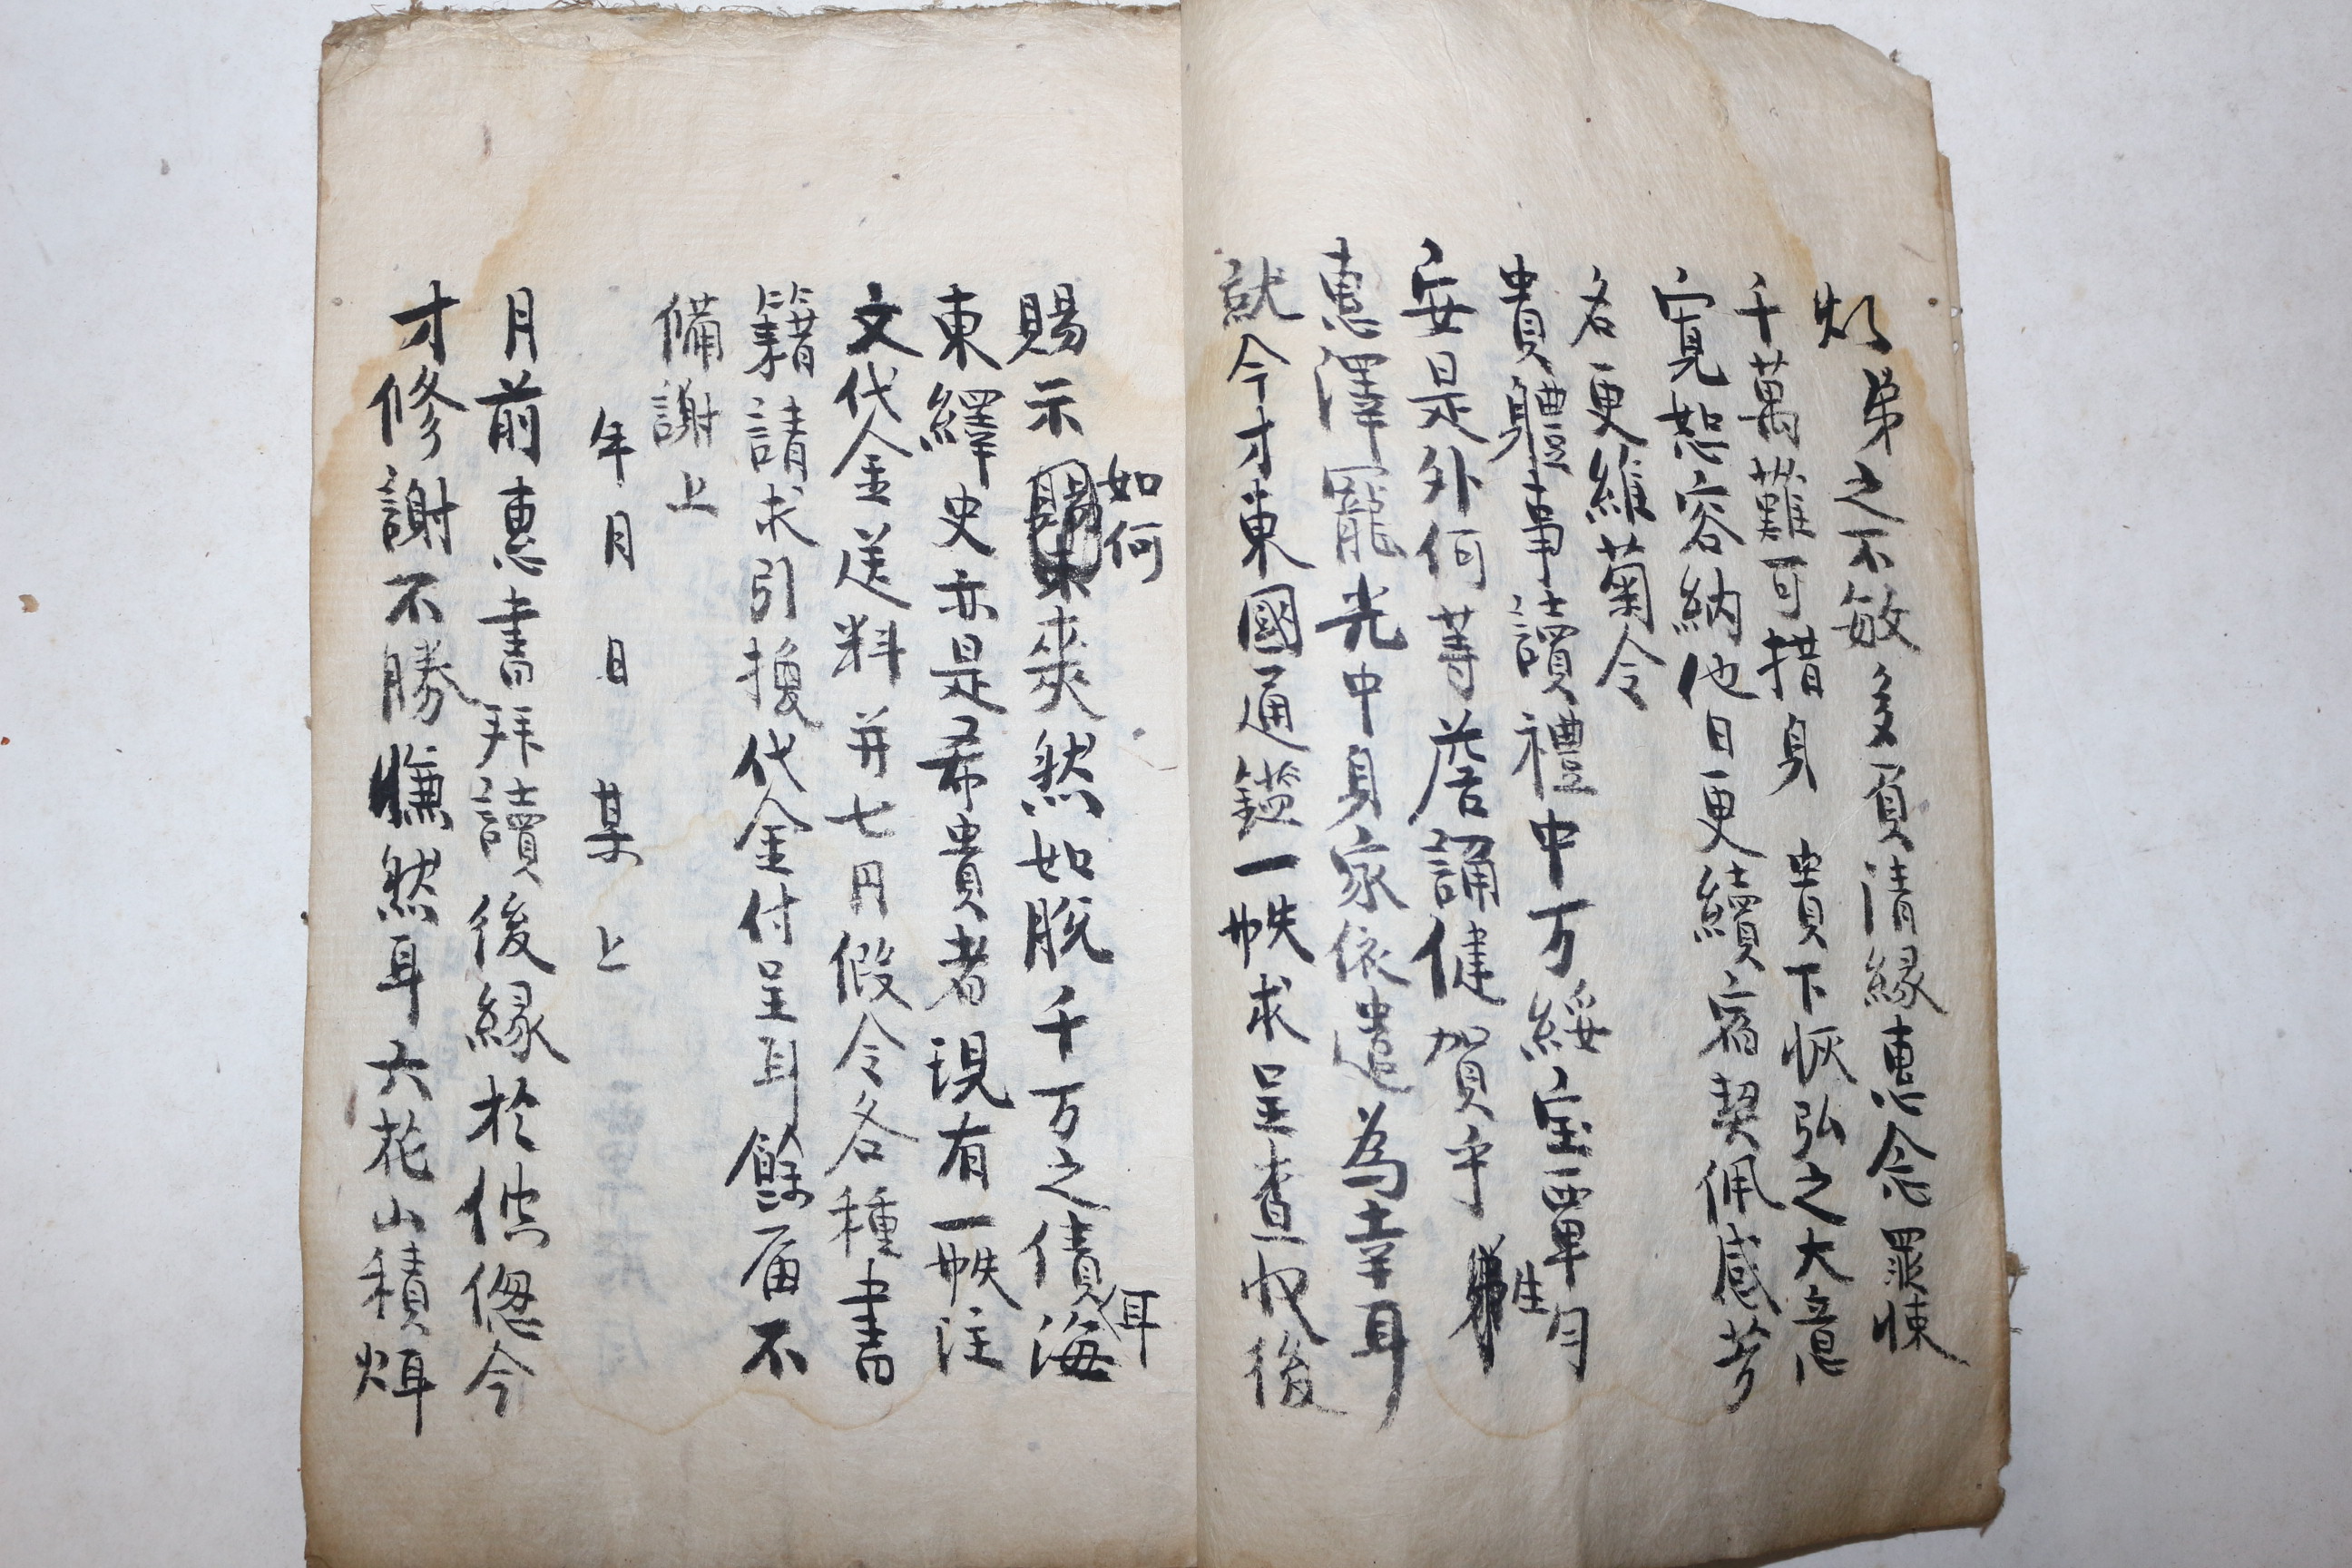 弟之不敏多負清緣惠念罪悚
千萬難可措身 貴下恢弘之大意
寬恕容納他日更續宿契佩感芳
名更維菊令
貴軆事讀禮中万綏宝覃勻
安是外何等莅誦健賀乎生
惠澤寵光中身家依遣為幸耳
就今才東國通鑑一帙求呈查收後
如何
賜示爽然如脫千万之債海耳
東繹史亦是希貴者現有一帙注
文代金送料并七円假令各種書
籍請求引換代金付呈耳餘届不
備謝上
年 月 日 某 上
月前惠書拜讀後緣於他偬今
才修謝不勝慊然耳六花山積